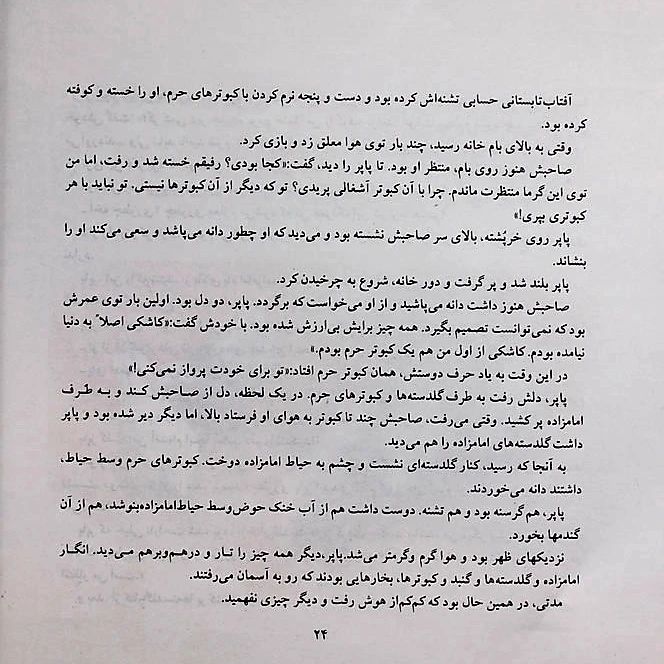 آفتاب تابستانی حسابی تشنه‌اش کرده بود و دست و پنجه نرم کردن با کبوترهای حرم، او را خسته و کوفته
کرده بود.
وقتی به بالای بام خانه رسید، چند بار توی هوا معلق زد و بازی کرد.
صاحبش هنوز روی بام، منتظر او بود. تا پاپر را دید، گفت:«کجا بودی؟ رفیقم خسته شد و رفت، اما من
توی این گرما منتظرت ماندم. چرا با آن کبوتر آشغالی پریدی؟ تو که دیگر از آن کبوترها نیستی. تو نباید با هر
کبوتری بپری!»
پاپر روی خرپُشته، بالای سر صاحبش نشسته بود و می‌دید که او چطور دانه می‌پاشد و سعی می‌کند او را
بنشاند.
پاپر بلند شد و پر گرفت و دور خانه، شروع به چرخیدن کرد.
صاحبش هنوز داشت دانه می‌پاشید و از او می‌خواست که برگردد. پاپر، دو دل بود. اولین بار توی عمرش
بود که نمی‌توانست تصمیم بگیرد. همه چیز برایش بی‌ارزش شده بود. با خودش گفت:«کاشکی اصلاً به دنیا
نیامده بودم. کاشکی از اول من هم یک کبوتر حرم بودم.»
در این وقت به یاد حرف دوستش، همان کبوتر حرم افتاد:«تو برای خودت پرواز نمی‌کنی!»
پاپر، دلش رفت به طرف گلدسته‌ها و کبوترهای حرم. در یک لحظه، دل از صاحبش کند و به طرف
امامزاده پر کشید. وقتی می‌رفت، صاحبش چند تا کبوتر به هوای او فرستاد بالا، اما دیگر دیر شده بود و پاپر
داشت گلدسته‌های امامزاده را هم می‌دید.
به آنجا که رسید، کنار گلدسته‌ای نشست و چشم به حیاط امامزاده دوخت. کبوترهای حرم وسط حیاط،
داشتند دانه می‌خوردند.
پاپر، هم گرسنه بود و هم تشنه. دوست داشت هم از آب خنک حوض وسط حیاط امامزاده بنوشد، هم از آن
گندمها بخورد.
نزدیکهای ظهر بود و هوا گرم و گرمتر می‌شد. پاپر، دیگر همه چیز را تار و درهم و برهم می‌دید. انگار
امامزاده و گلدسته‌ها و گنبد و کبوترها، بخارهایی بودند که رو به آسمان می‌رفتند.
مدتی، در همین حال بود که کم‌کم از هوش رفت و دیگر چیزی نفهمید.
۲۴